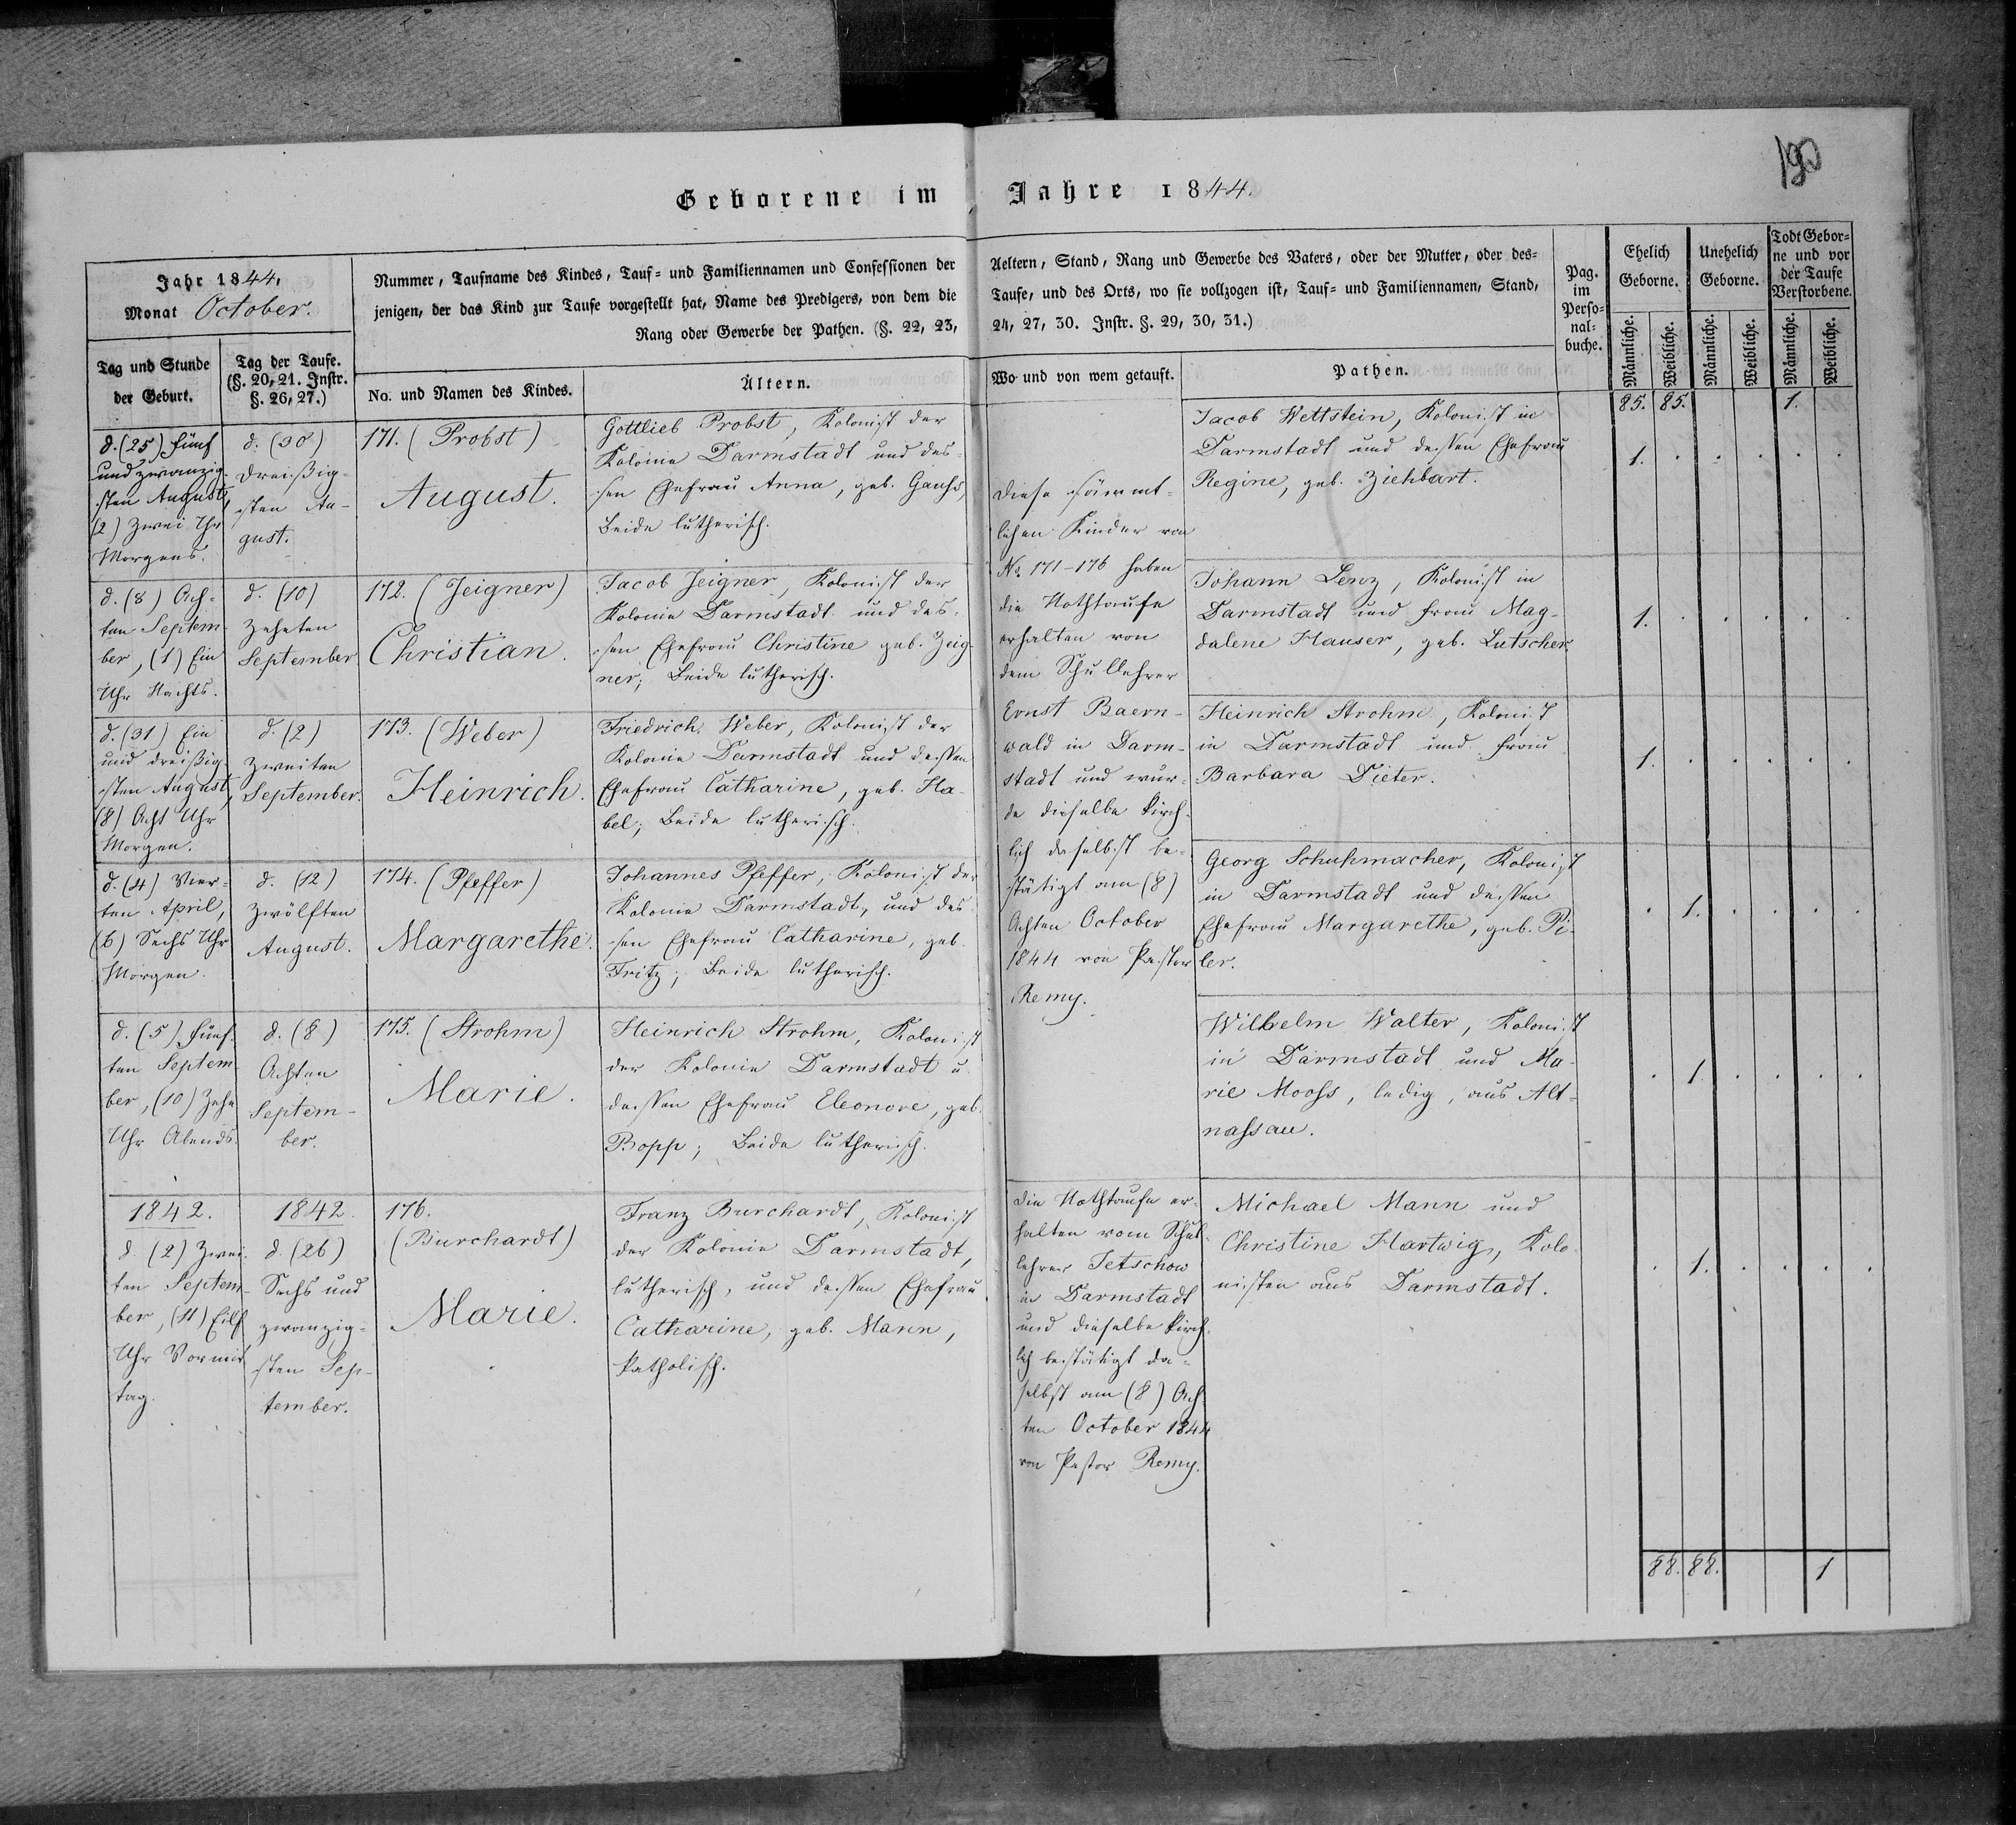 190
Geborene im Jahre 1844.
Jahr 1844.
Monat October.
Nummer, Taufname des Kindes, Tauf- und Familiennamen und Confessionen der
jenigen, der das Kind zur Taufe vorgestellt hat, Name des Predigers, von dem die
Rang oder Gewerbe der Pathen. (§. 22, 23,
Aeltern, Stand, Rang und Gewerbe des Vaters, oder der Mutter, oder des-
Taufe, und des Orts, wo sie vollzogen ist, Tauf- und Familiennamen, Stand,
24, 27, 30. Instr. §. 29, 30, 31.)
Pag.
im
Perso-
nal-
buche.
Ehelich
Geborne.
Unehelich
Geborne.
Todt Gebor-
ne und vor
der Taufe
Verstorbene.
Tag und Stunde
der Geburt.
Tag der Taufe.
(§. 20, 21. Instr.
§. 26, 27.)
No. und Namen des Kindes.
Ältern.
Wo und von wem getauft.
Pathen.
Männliche.
Weibliche.
Männliche.
Weibliche.
Männliche.
Weibliche.
85. 85. 1.
d. (25) fünf
und zwanzig-
sten August,
(2) Zwei Uhr
Morgens.
d. (30)
Dreißig-
sten Au-
gust.
171. (Probst)
August.
Gottlieb Probst, Kolonist der
Kolonie Darmstadt und des-
sen Ehefrau Anna, geb. Gauhs,
Beide lutherisch.
Jacob Wettstein, Kolonist in
Darmstadt und dessen Ehefrau
Regine, geb. Ziehbart.
1.
d. (8) Ach-
ten Septem-
ber, (1) Ein
Uhr Nachts.
d. (10)
Zehnten
September
172. (Zeigner)
Christian.
Jacob Zeigner, Kolonist der
Kolonie Darmstadt und des-
sen Ehefrau Christine geb. Zeig-
ner; Beide lutherisch.
Johann Lenz, Kolonist in
Darmstadt und Frau Mag-
dalene Hauser, geb. Lutscher
1.
d. (31) Ein
und dreißig-
sten August,
(8) Acht Uhr
Morgen.
d. (2)
Zweiten
September.
173. (Weber)
Heinrich.
Friedrich Weber, Kolonist der
Kolonie Darmstadt und dessen
Ehefrau Catharine, geb. Ha-
bel; Beide lutherisch.
Heinrich Strohm, Kolonist
in Darmstadt und Frau
Barbara Dieter.
1.
d. (4) Vier-
ten April,
(6) Sechs Uhr
Morgen.
d. (12)
Zwölften
August.
174. (Pfeffer)
Margarethe.
Johannes Pfeffer, Kolonist der
Kolonie Darmstadt, und des-
sen Ehefrau Catharine, geb.
Fritz; Beide lutherisch.
Georg Schuhmacher, Kolonist
in Darmstadt und dessen
Ehefrau Margarethe, geb. Pi-
ler.
1.
d. (5) Fünf-
ten Septem-
ber, (10) Zehn
Uhr Abends.
d. (8)
Achten
Septem-
ber.
175. (Strohm)
Marie.
Heinrich Strohm, Kolonist
der Kolonie Darmstadt u.
dessen Ehefrau Eleonore, geb.
Bopp; Beide lutherisch.
Diese sämmt-
lichen Kinder von
No. 171-176 haben
die Nothtaufe
erhalten von
dem Schullehrer
Ernst Baern-
wald in Darm-
stadt und wur-
de dieselbe kirch-
lich daselbst be-
stätigt am (8)
Achten October
1844 von Pastor
Remy.
Wilhelm Walter, Kolonist
in Darmstadt und Ma-
rie Moohs, ledig, aus Alt-
nassau.
1
1842.
d. (2) Zwei-
ten Septem-
ber, (11) Eilf
Uhr Vormit-
tag.
1842.
d. (26)
Sechs und
zwanzig-
sten Sep-
tember.
176.
(Burchardt)
Marie.
Franz Burchardt, Kolonist
der Kolonie Darmstadt,
lutherisch, und dessen Ehefrau
Catharine, geb. Mann,
katholisch.
Die Nothtaufe er-
halten vom Schul-
lehrer Tetschow
in Darmstadt
und dieselbe kirch-
lich bestätigt da-
selbst am (8) Ach-
ten October 1844
von Pastor Remy.
Michael Mann und
Christine Hartwig, Kolo-
nisten aus Darmstadt.
1.
88. 88. 1